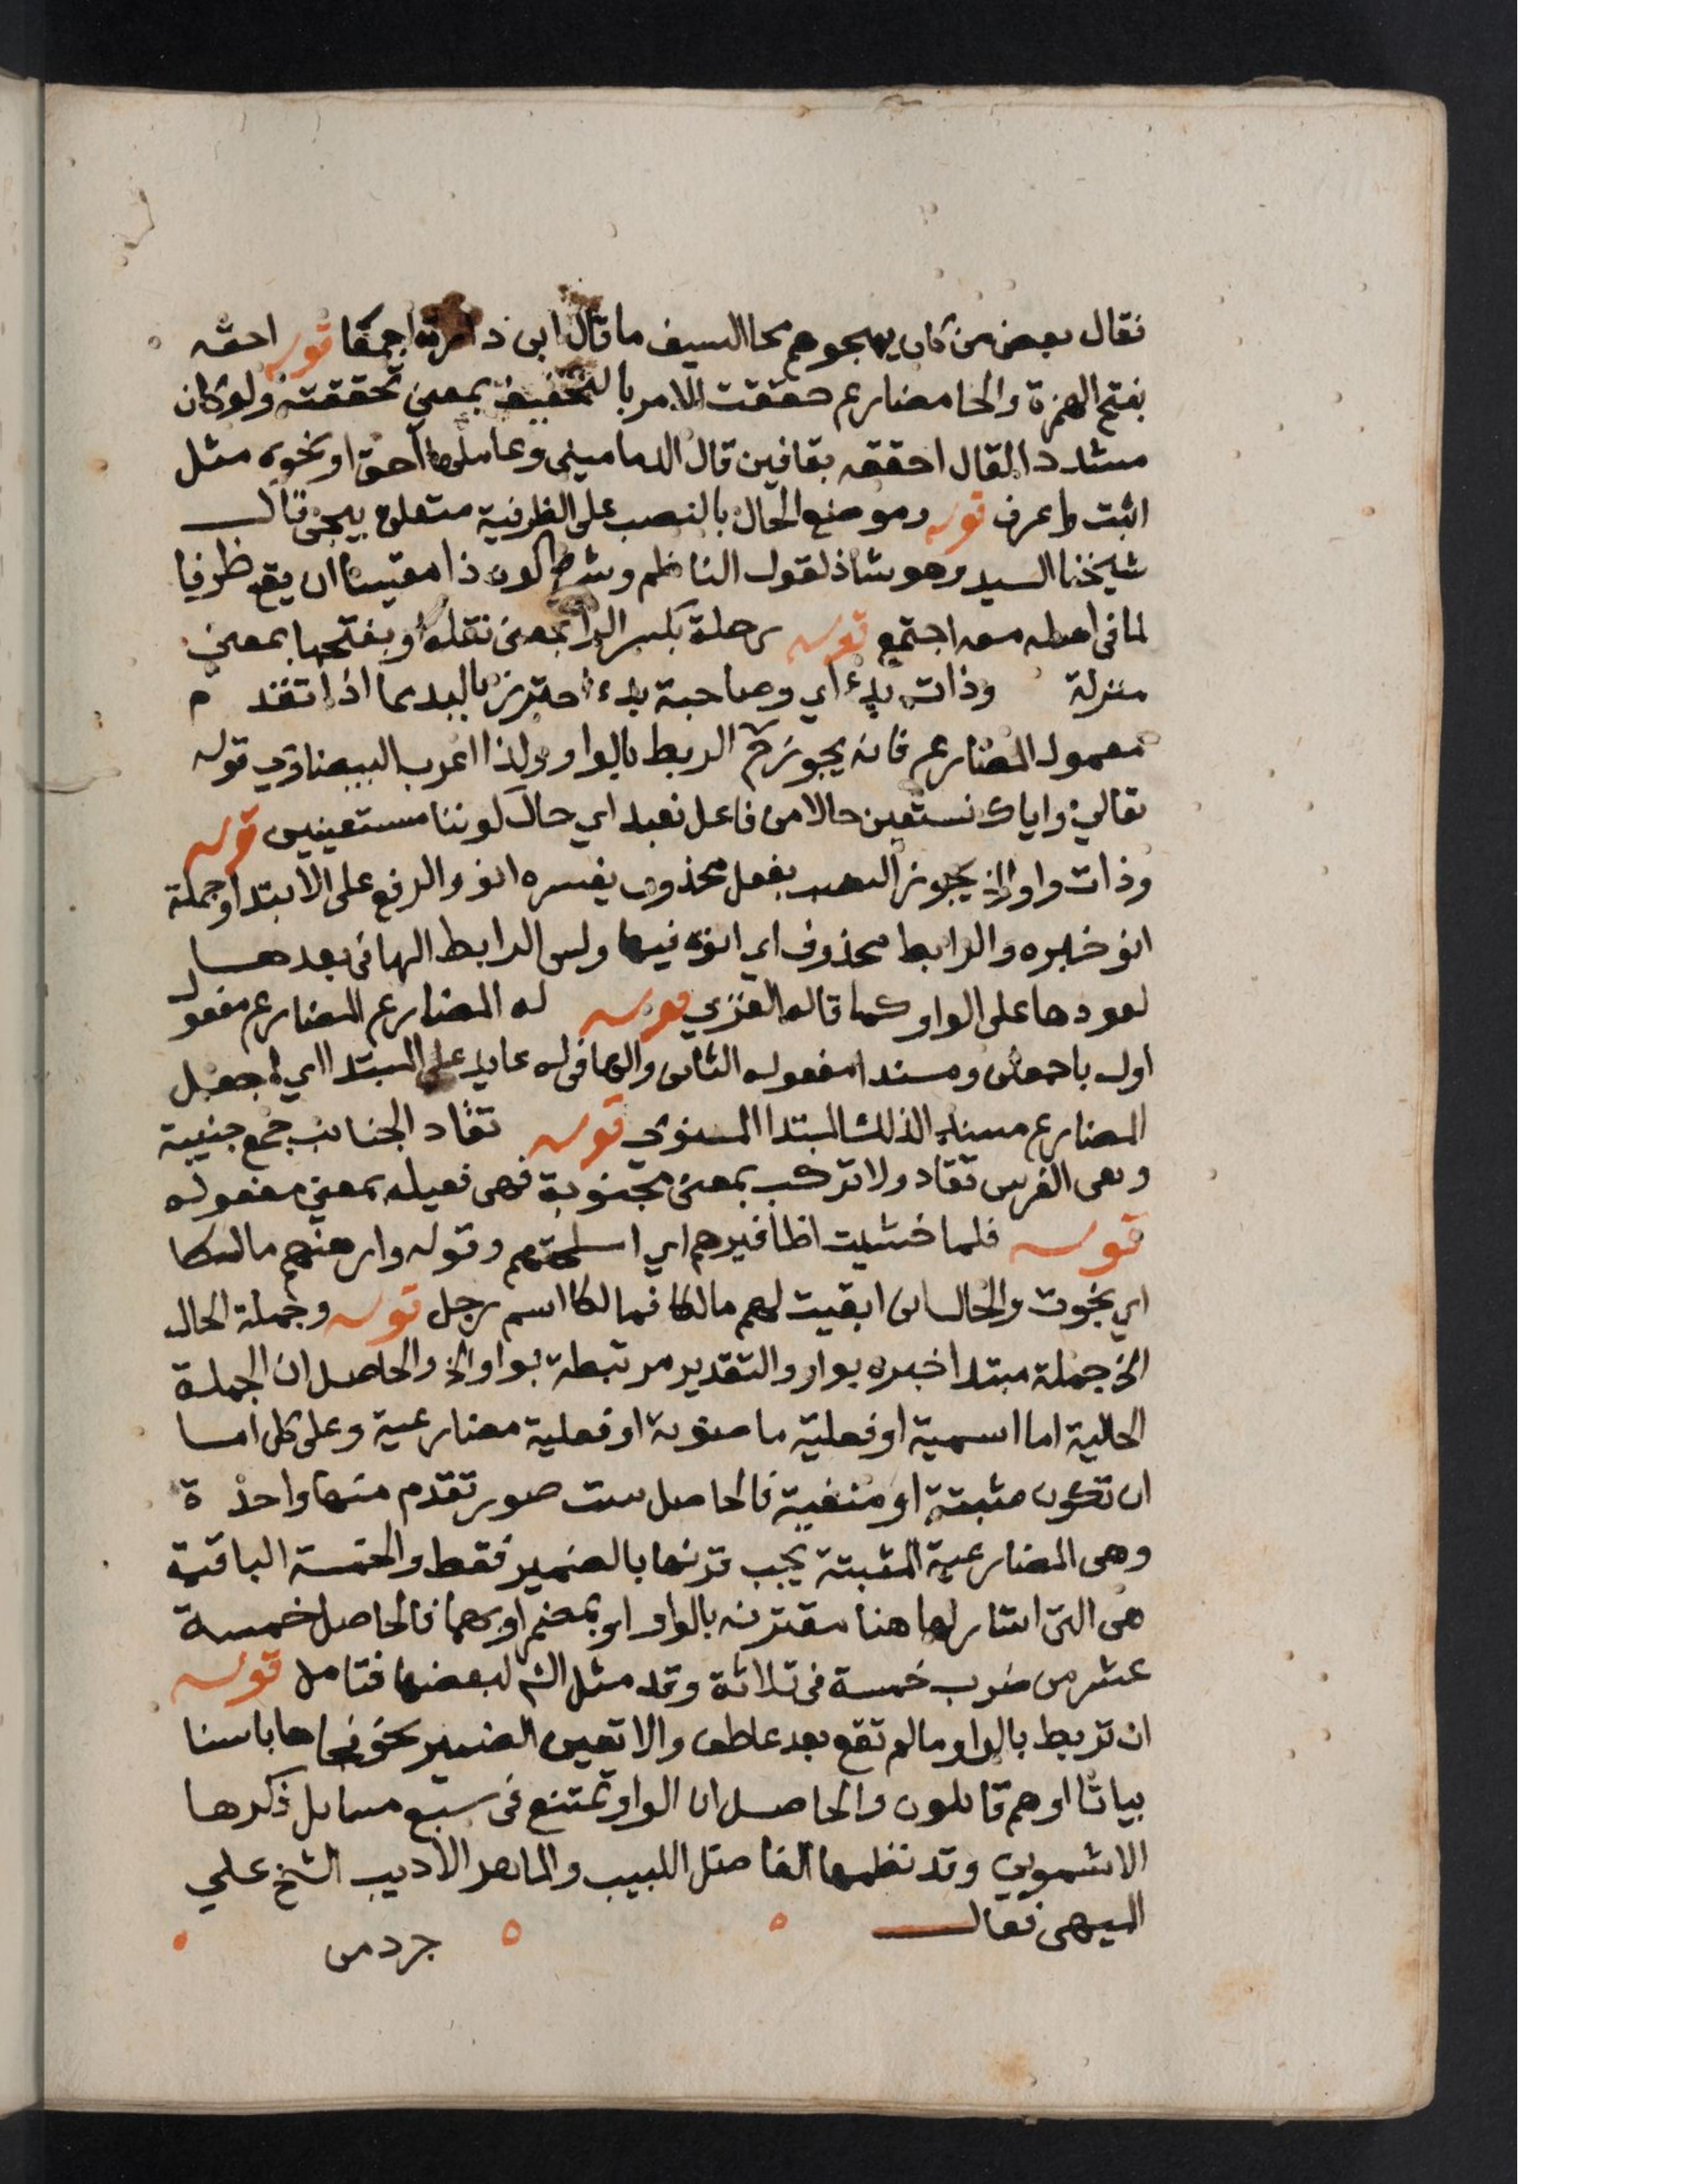 فقال بعض من كان يهجوهم محا السيف ما قال ابن دارة اجمعا قوله احقه
بفتح الهمزة والحا مضارع حققت الامر بالتخفيف بمعنى تحققته ولو كان
مشددا لقال احققه بقافين قال الدماميني وعاملها احق او نحوه مثل
اثبت واعرف قوله وموضع الحال بالنصب على الظرفية متعلق بيجي قال
شيخنا السيد وهو شاذ لقول الناظم وشرط كون ذا مقيسا ان يقع ظرفا
لما في اصله معه اجتمع قوله رحلة بكسر الرا بمعنى نقله وبفتحها بمعنى
منزلة وذات بدء اي وصاحبة بدء احترز بالبدء عما اذا تقدم
معمول المضارع فانه يجوز ح الربط بالواو ولذا اعرب البيضاوي قوله
تعالى واياك نستعين حالا من فاعل نعبد اي حال كوننا مستعينين قوله
وذات واو الخ يجوز النصب بفعل محذوف يفسره انو والرفع على الابتدا وجملة
انو خبره والرابط محذوف اي انوه فيها وليس الرابط الها في بعدها
لعودها على الواو كما قاله الغزي قوله له المضارع المضارع مفعول
اول باجعلن ومسندا مفعوله الثاني والها في له عايد على المبتدا اي اجعل
المضارع مسندا لذلك المبتدا المنوي قوله تقاد الجنائب جمع جنيبة
وهي الفرس تقاد ولا تركب بمعنى مجنوبة فهي فعيله بمعنى مفعوله
قوله فلما خشيت اظافيرهم اي اسلحتهم وقوله وارهنهم مالكا
اي نجوت والحال اني ابقيت لهم مالكا فمالكا اسم رجل قوله وجملة الحال
الخ جملة مبتدا خبره بواو والتقدير مرتبطة بواو الخ والحاصل ان الجملة
الحالية اما اسمية او فعلية ماضوية او فعلية مضارعية وعلى كل اما
ان تكون مثبتة او منفية فالحاصل ست صور تقدم منها واحدة
وهي المضارعية المثبتة يجب قرنها بالضمير فقط والخمسة الباقية
هي التي اشار لها هنا مقترنه بالواو او بمضمر او بهما فالحاصل خمسة
عشر من ضرب خمسة في ثلاثة وقد مثل الش لبعضها فتامل قوله
ان تربط بالواو ما لم تقع بعد عاطف والا تعين الضمير نحو فجاها باسنا
بياتا او هم قايلون والحاصل ان الواو تمتنع في سبع مسايل ذكرها
الاشموني وقد نظمها الفاضل اللبيب والماهر الاديب الشيخ علي
فقال
جرد من